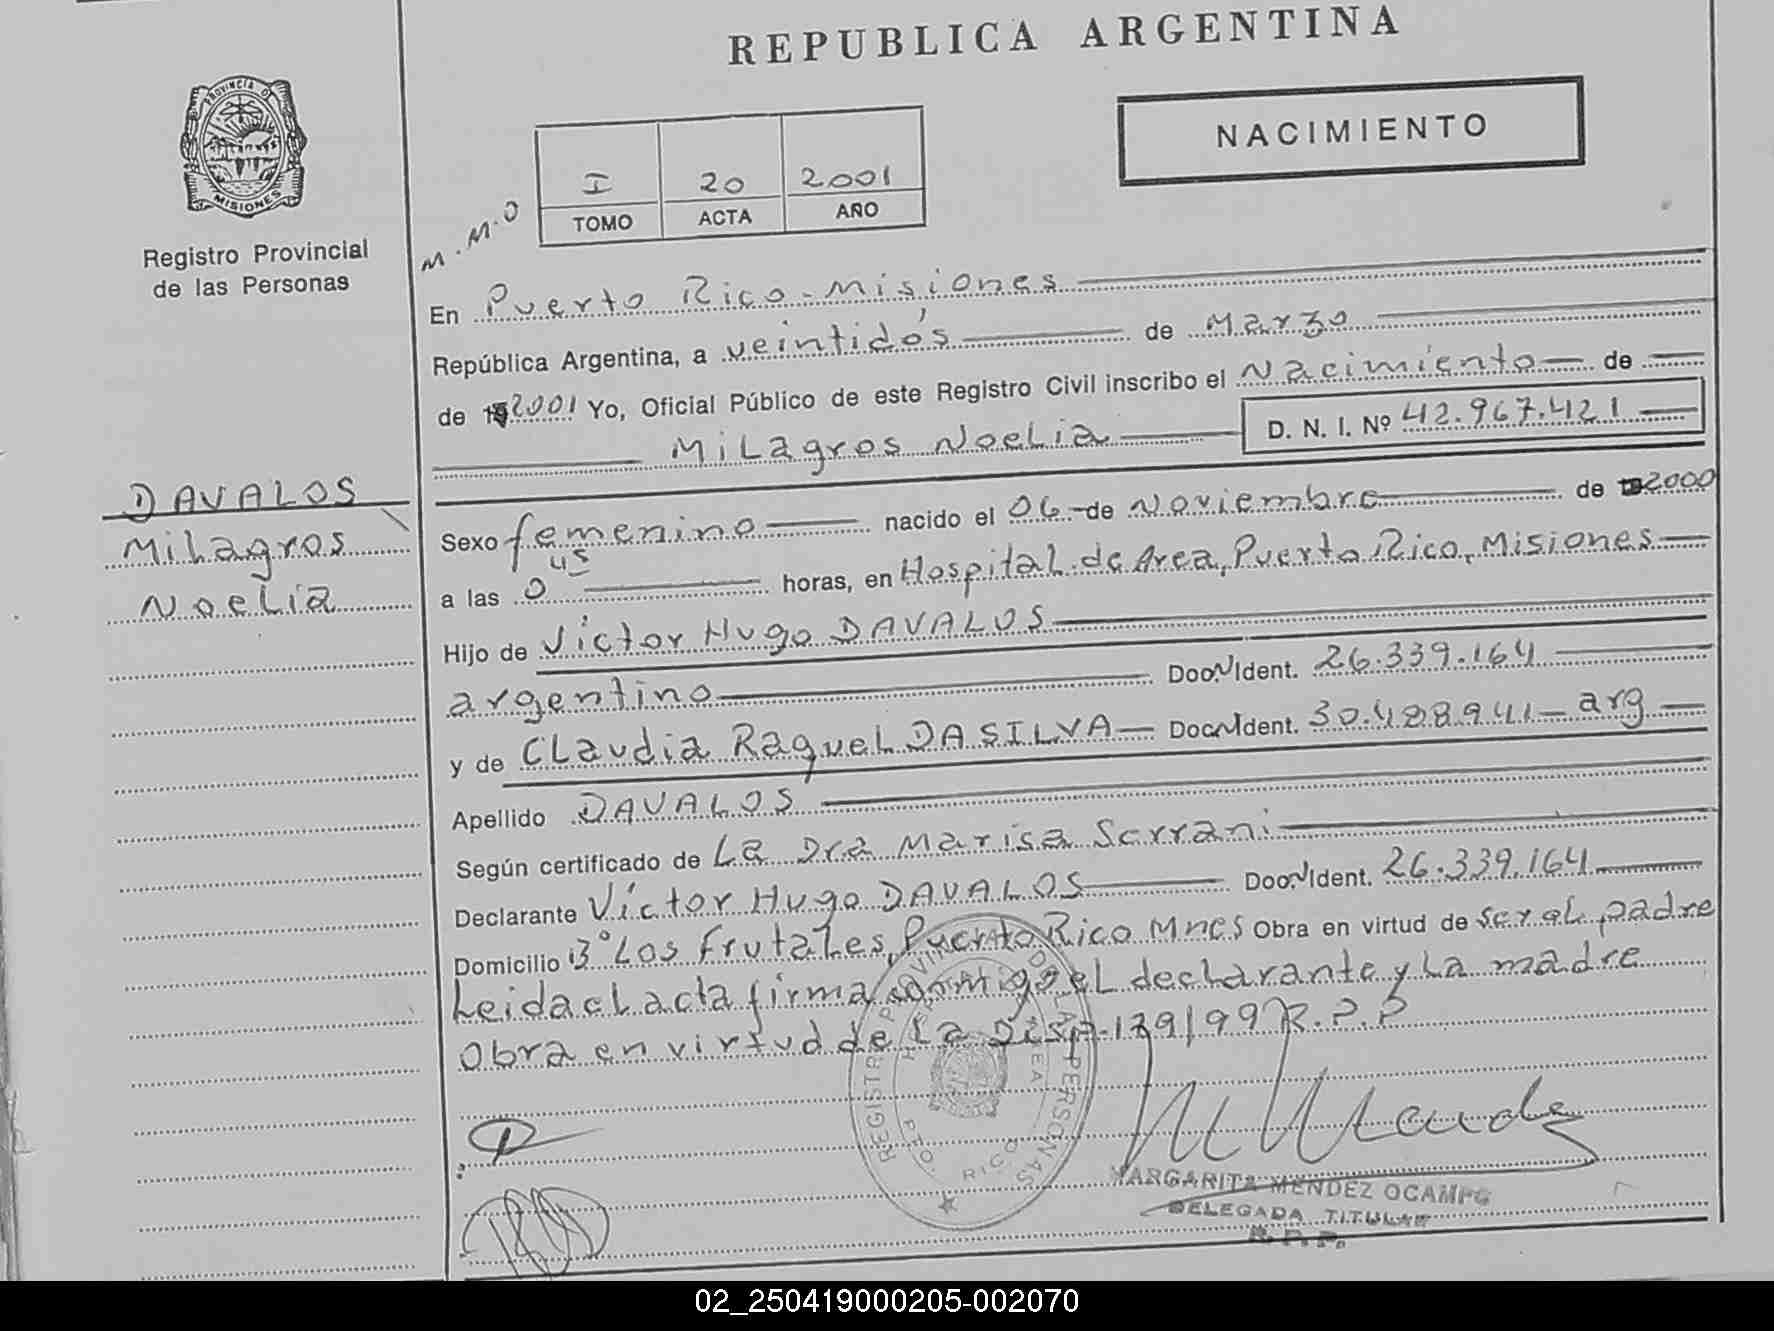 REPUBLICA ARGENTINA
PROVINCIA D
MISIONES
Registro Provincial
de las Personas
NACIMIENTO
I 20 2001
TOMO ACTA AÑO
M.M.O
En Puerto Rico - Misiones
República Argentina, a veintidós de Marzo
de 2001 Yo, Oficial Público de este Registro Civil inscribo el Nacimiento de
Milagros Noelia D. N. I. Nº 42.967.421
DAVALOS
Milagros
Noelia
Sexo femenino nacido el 06 de Noviembre de 2000
a las 0 45 horas, en Hospital de Area, Puerto Rico, Misiones
Hijo de Víctor Hugo DAVALOS
argentino Doc. Ident. 26.339.164
y de Claudia Raquel DA SILVA Doc. Ident. 30.488.941 - arg
Apellido DAVALOS
Según certificado de La Dra Marisa Serrani
Declarante Víctor Hugo DAVALOS Doc. Ident. 26.339.164
Domicilio Bº Los Frutales, Puerto Rico Mnes Obra en virtud de ser el padre
Leida el acta firma conmigo el declarante y La madre
Obra en virtud de La Disp. 179/99 R.P.P
REGISTRO PROVINCIAL DE LAS PERSONAS
PTO. RICO
MARGARITA MENDEZ OCAMPO
DELEGADA TITULAR
R. P. P.
02_250419000205-002070